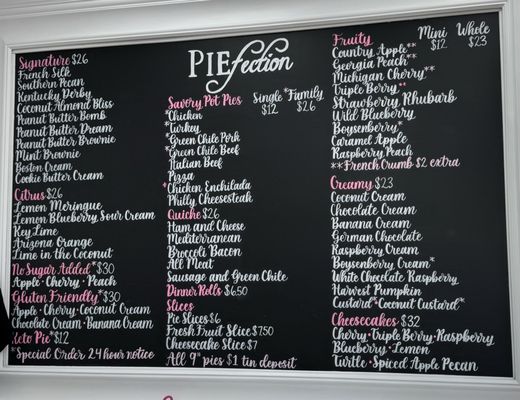 PIEfection
Signature $26
French Silk
Southern Pecan
Kentucky Derby
Coconut Almond Bliss
Peanut Butter Bomb
Peanut Butter Dream
Peanut Butter Brownie
Mint Brownie
Boston Cream
Cookie Butter Cream
Citrus $26
Lemon Meringue
Lemon Blueberry Sour Cream
Key Lime
Arizona Orange
Lime in the Coconut
No Sugar Added* $30
Apple · Cherry · Peach
Gluten Friendly* $30
Apple · Cherry · Coconut Cream
Chocolate Cream · Banana Cream
Keto Pie* $12
*Special Order 24 hour notice
Savory Pot Pies Single $12 *Family $26
*Chicken
*Turkey
*Green Chile Pork
*Green Chile Beef
Italian Beef
Pizza
*Chicken Enchilada
Philly Cheesesteak
Quiche $26
Ham and Cheese
Mediterranean
Broccoli Bacon
All Meat
Sausage and Green Chile
Dinner Rolls $6.50
Slices
Pie Slices $6
Fresh Fruit Slice $7.50
Cheesecake Slice $7
All 9" pies $1 tin deposit
Fruity Mini $12 Whole $23
Country Apple**
Georgia Peach**
Michigan Cherry**
Triple Berry**
Strawberry Rhubarb
Wild Blueberry
Boysenberry*
Caramel Apple
Raspberry Peach
**French Crumb $2 extra
Creamy $23
Coconut Cream
Chocolate Cream
Banana Cream
German Chocolate
Raspberry Cream
Boysenberry Cream*
White Chocolate Raspberry
Harvest Pumpkin
Custard* Coconut Custard*
Cheesecakes $32
Cherry · Triple Berry · Raspberry
Blueberry · Lemon
Turtle · Spiced Apple Pecan